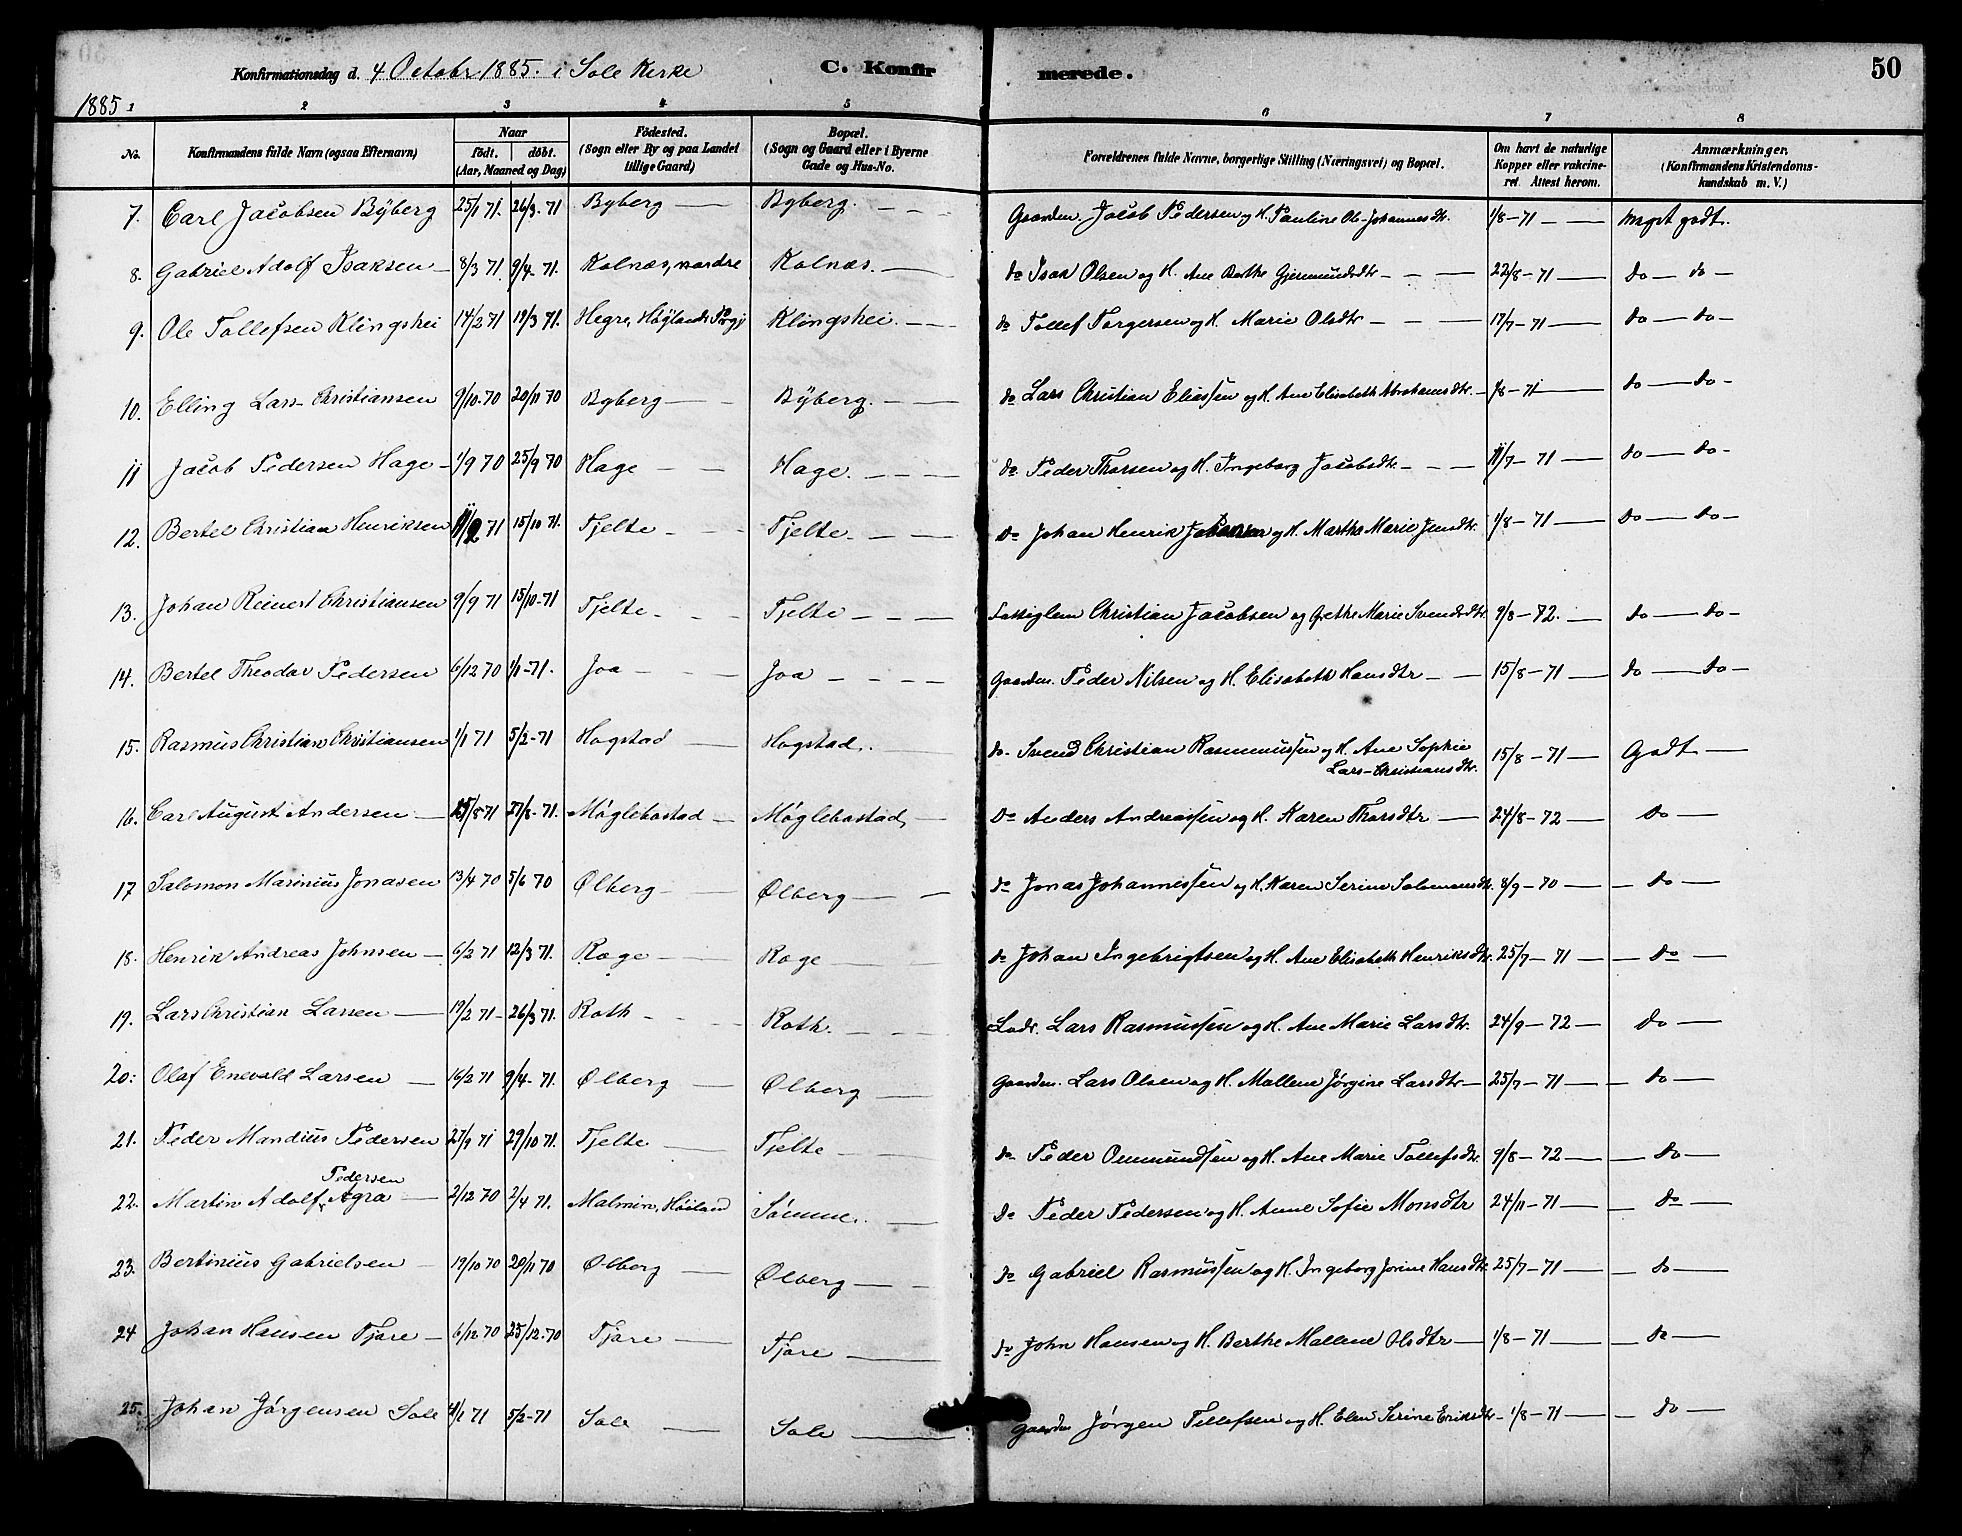 Konfirmationsdag d. 4 Octobr 1885. i Sole Kirke C. Konfirmerede. 50
1885
1 2 3 4 5 6 7 8
No. Konfirmandens fulde Navn (ogsaa Efternavn) Naar født. døbt. (Aar, Maaned og Dag) Födested. (Sogn eller By og paa Landet tillige Gaard) Bopæl. (Sogn og Gaard eller i Byerne Gade og Hus-No. Forældrenes fulde Navne, borgerlige Stilling (Næringsvei) og Bopæl. Om havt de naturlige Kopper eller vakcineret. Attest herom. Anmærkninger. (Konfirmandens Kristendomskundskab m. V.)
7. Carl Jacobsen Byberg 25/1 71. 26/3-71 Byberg — Byberg. — Gaardm. Jacob Pedersen og H. Pauline Ole-Johannesdtr. 1/8-71 — Meget godt.
8. Gabriel Adolf Isaksen — 8/3 71. 9/4-71. Kolnæs, nordre Kolnæs. — do Isak Olsen og H. Ane Berthe Gjermundsdtr — 22/8-71 — do — do —
9. Ole Tollefsen Klingshei 14/2 71 19/3 71. Hegre, Høylands Prgj Klingshei. — do Tollef Torgersen og H. Marie Olsdtr — 17/7-71 — do — do —
10. Elling Lars-Christiansen 9/10-70 20/11 70 Byberg — Byberg. — do Lars Christian Eliassen og H. Ane Elisabeth Abrahamsdtr. — /8-71 — do — do —
11 Jacob Pedersen Hage — 1/9 70 25/9 70 Hage — Hage. — do Peder Thorsen og H. Ingeborg Jacobsdtr — 11/7-71 — do — do —
12. Bertel Christian Henriksen 71 15/10 71. Tjelte — Tjelte — do Johan Henrik og H. Marthe Marie Jensdtr. 1/8-71 — do — do —
13. Johan Reinert Christiansen 9/9 71 15/10-71 Tjelte — Tjelte — Fattiglem Christian Jacobsen og Grethe Marie Svendsdtr. 9/8-72. — do — do —
14. Bertel Theodor Pedersen 6/12 70 1/1-71. Joa — Joa — Gaardm. Peder Nilsen og H. Elisabeth Hansdtr — 15/8-71 — do — do —
15. Rasmus Christian Christiansen 1/1 71 5/2-71 Hogstad — Hogstad. do. Svend Christian Rasmussen og H. Ane Sophie Lars-Christiansdtr. 15/8-71 — Godt —
16. Carl August Andersen — 25/8 71 27/8-71. Møglebostad — Møglebostad, — do Anders Andreassen og H. Karen Thorsdtr — 24/8-72 — do —
17 Salomon Marinius Jonasen 13/4 70 5/6 70 Ølberg — Ølberg — do Jonas Johannessen og H. Karen Serine Salomonsdtr. 8/9-70 — do —
18. Henrik Andreas Johnsen — 6/2 71 12/3 71. Røge — Røge — do Johan Ingebrigtsen og H. Ane Elisabeth Henriksdtr. 25/7-71 — do —
19. Lars Christian Larsen — 19/2 71- 26/3 71. Roth — Roth. — Ladr. Lars Rasmussen og H. Ane Marie Larsdtr. 24/9-72 — do —
20: Olaf Enevald Larsen — 16/2 71 9/4-71. Ølberg — Ølberg — Gaardm. Lars Olsen og H. Mallene Jørgine Larsdtr — 25/7-71 — do —
21. Peder Mandius Pedersen 27/9 71 29/10 71. Tjelte. — Tjelte — do Peder Ommundsen og H. Ane Marie Tollefsdtr 9/8-72 — do —
22. Martin Adolf Pedersen Agra — 2/12 70 2/4 71. Malmin, Høiland Sømme. — do Peder Pedersen og H. Anne Sofie Monsdtr 24/11-71 — do —
23. Bertinius Gabrielsen — 19/10 70 20/11 70 Ølberg — Ølberg — do Gabriel Rasmussen og H. Ingeborg Jorine Hansdtr 25/7-71 — do —
24 Johan Hansen Tjore — 6/12 70 25/12-70 Tjore — Tjore — do John Hansen og H. Berthe Mallene Olsdtr — 1/8-71 — do —
25. Johan Jørgensen Sole 4/1 71 5/2-71 Sole — Sole — Gaardm Jørgen Tollefsen og H. Elen Serine Eriksdtr — 1/8-71 — do —